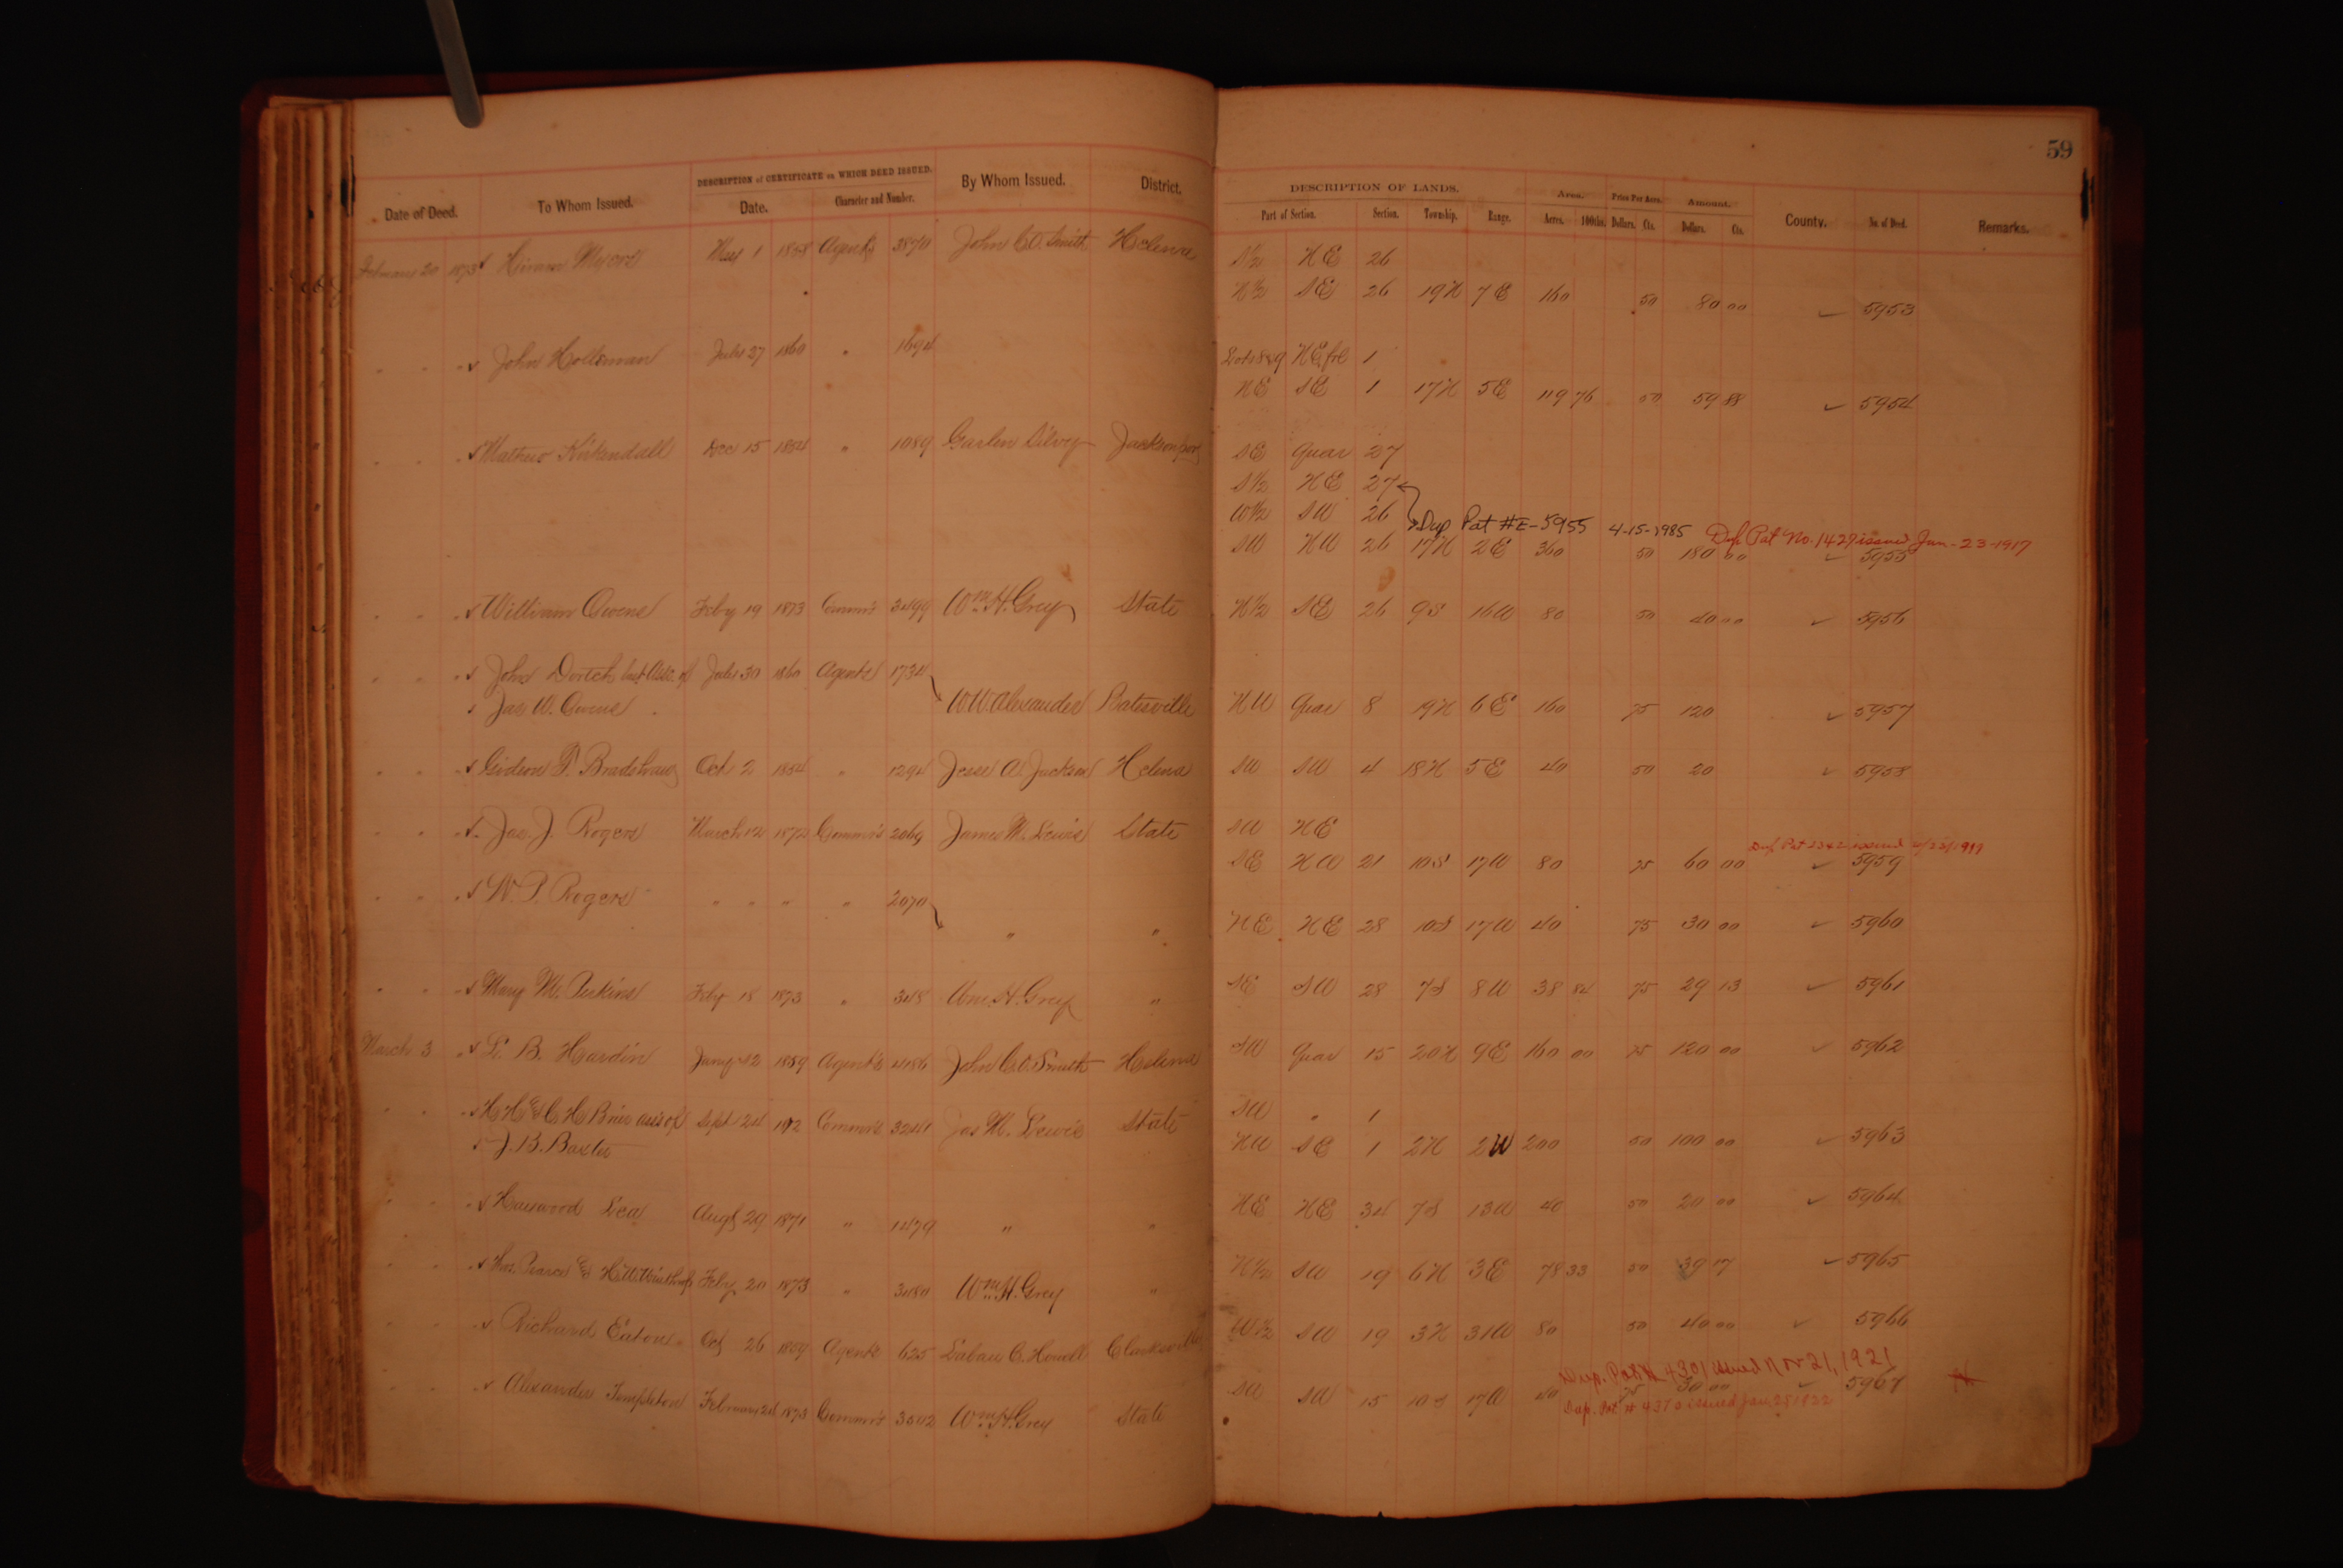 59
DESCRIPTION of CERTIFICATE on WHICH DEED ISSUED. By Whom Issued. District. DESCRIPTION OF LANDS. Area. Price Per Acre. Amount. County. No. of Deed. Remarks.
Date of Deed. To Whom Issued. Date. Character and Number. Part of Section. Section. Township. Range. Acres. 100ths. Dollars. Cts. Dollars. Cts.
February 20 1873 Hiram Myers May 1 1858 Agents 3870 John C.O. Smith Helena S½ NE 26
N½ SE 26 19N 7E 160 50 80 00 ✓ 5953
" " " ✓ John Holloman July 27 1860 " 1694 Lots 8&9 NE frl 1
NE SE 1 17N 5E 119 76 50 59 88 ✓ 5954
" " " ✓ Mathew Kirkendall Dec 15 1854 " 1089 Garlen Silvey Jacksonport SE Quar 27
S½ NE 27
W½ SW 26 Dup Pat #E-5955 4-15-1985 Dup Pat No. 1427 issued Jan-23-1917
SW NW 26 17N 2E 360 50 180 00 ✓ 5955
" " " ✓ William Owens Feby 19 1873 Comm's 3499 Wm H. Grey State N½ SE 26 9S 16W 80 50 40 00 ✓ 5956
" " " ✓ John Dortch last Ass. of July 30 1860 Agents 1734
✓ Jas W. Owens W W Alexander Batesville NW Quar 8 19N 6E 160 75 120 ✓ 5957
" " " ✓ Gideon F. Bradshaw Oct 2 1854 " 1294 Jesse A. Jackson Helena SW SW 4 18N 5E 40 50 20 ✓ 5958
" " " ✓ Jas. J. Rogers March 12 1872 Comm's 2069 James M. Lewis State SW NE
Dup Pat 2342 issued
SE NW 21 10S 17W 80 75 60 00 ✓ 5959
" " " ✓ W. P. Rogers " " " " 2070
" " NE NE 28 10S 17W 40 75 30 00 ✓ 5960
" " " ✓ Mary M. Perkins Feby 18 1873 " 348 Wm. H. Grey " SE SW 28 7S 8W 38 84 75 29 13 ✓ 5961
March 3 " ✓ L. B. Hardin Jany 12 1859 Agent's 4186 John C.O. Smith Helena SW Quar 15 20N 9E 160 00 75 120 00 ✓ 5962
" " " ✓ H. H. & C. H. Brier ass of Sept 24 1872 Comm's 3241 Jas M. Lewis State SW " 1
✓ J. B. Baxter NW SE 1 2N 2W 200 50 100 00 ✓ 5963
" " " ✓ Haywood Lea Augt 29 1871 " 1479 " " NE NE 34 7S 13W 40 50 20 00 ✓ 5964
" " " ✓ Pearce & Feby 20 1873 " 3480 Wm H. Grey " N½ SW 19 6N 3E 78 33 50 39 17 ✓ 5965
" " " ✓ Richard Eaton Oct 26 1859 Agents 625 Laban C. Howell Clarksville W½ SW 19 3N 31W 80 50 40 00 ✓ 5966
Dup. Pat # 4301 issued Nov 21, 1921
" " " ✓ Alexander Templeton February 24 1873 Comm's 3502 Wm H. Grey State SW SW 15 10S 17W 40 75 30 00 ✓ 5967
Dup. Pat # 4370 issued Jan 28 1922